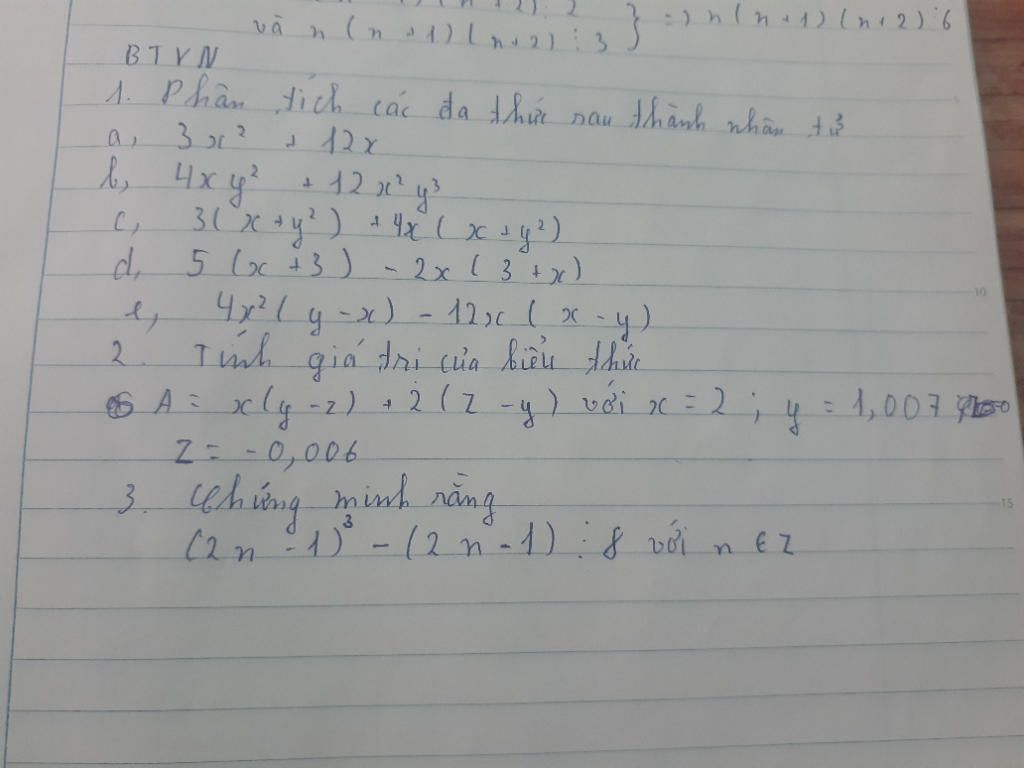 và n(n+1)(n+2)⋮3 } => n(n+1)(n+2)⋮6
BTVN
1. Phân tích các đa thức sau thành nhân tử
a, 3x² + 12x
b, 4xy² + 12x²y³
c, 3(x+y²) + 4x(x+y²)
d, 5(x+3) - 2x(3+x)
e, 4x²(y-x) - 12x(x-y)
2. Tính giá trị của biểu thức
A = x(y-z) + 2(z-y) với x = 2; y = 1,007
z = -0,006
3. Chứng minh rằng
(2n-1)³ - (2n-1)⋮8 với n ∈ Z
5
10
15